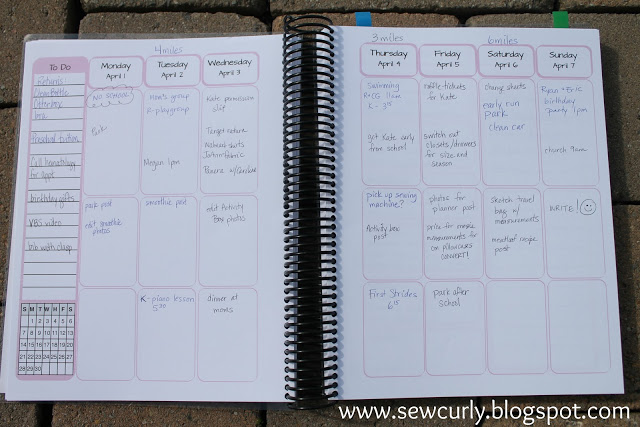 To Do
Returns
4 miles
Monday
April 1
NO SCHOOL
park post
edit smoothie
photos
Tuesday
April 2
mom's group
K playgroup
Megan 1pm
smoothie post
K- piano lesson
5:30
Wednesday
April 3
Kate permission
slip
Target return
edit Activity
Box photos
dinner at
moms
Call hematology
for appt
birthday gifts
VBS video
S M T W T F S
1 2 3 4 5 6
7 8 9 10 11 12 13
14 15 16 17 18 19 20
21 22 23 24 25 26 27
28 29 30
3 miles
6 miles
Thursday
April 4
Swimming
get Kate early
from school
pick up sewing
machine?
Activity box
post
First Strides
6:15
Friday
April 5
raffle tickets
for Kate
switch out
closets/drawers
for size and
season
photos for
planner post
park after
school
Saturday
April 6
change sheets
early run
park
clean car
sketch travel
bag w/
measurements
meatloaf recipe
post
Sunday
April 7
Ryan + Eric
birthday
party 1pm
church 9am
WRITE!
www.sewcurly.blogspot.com